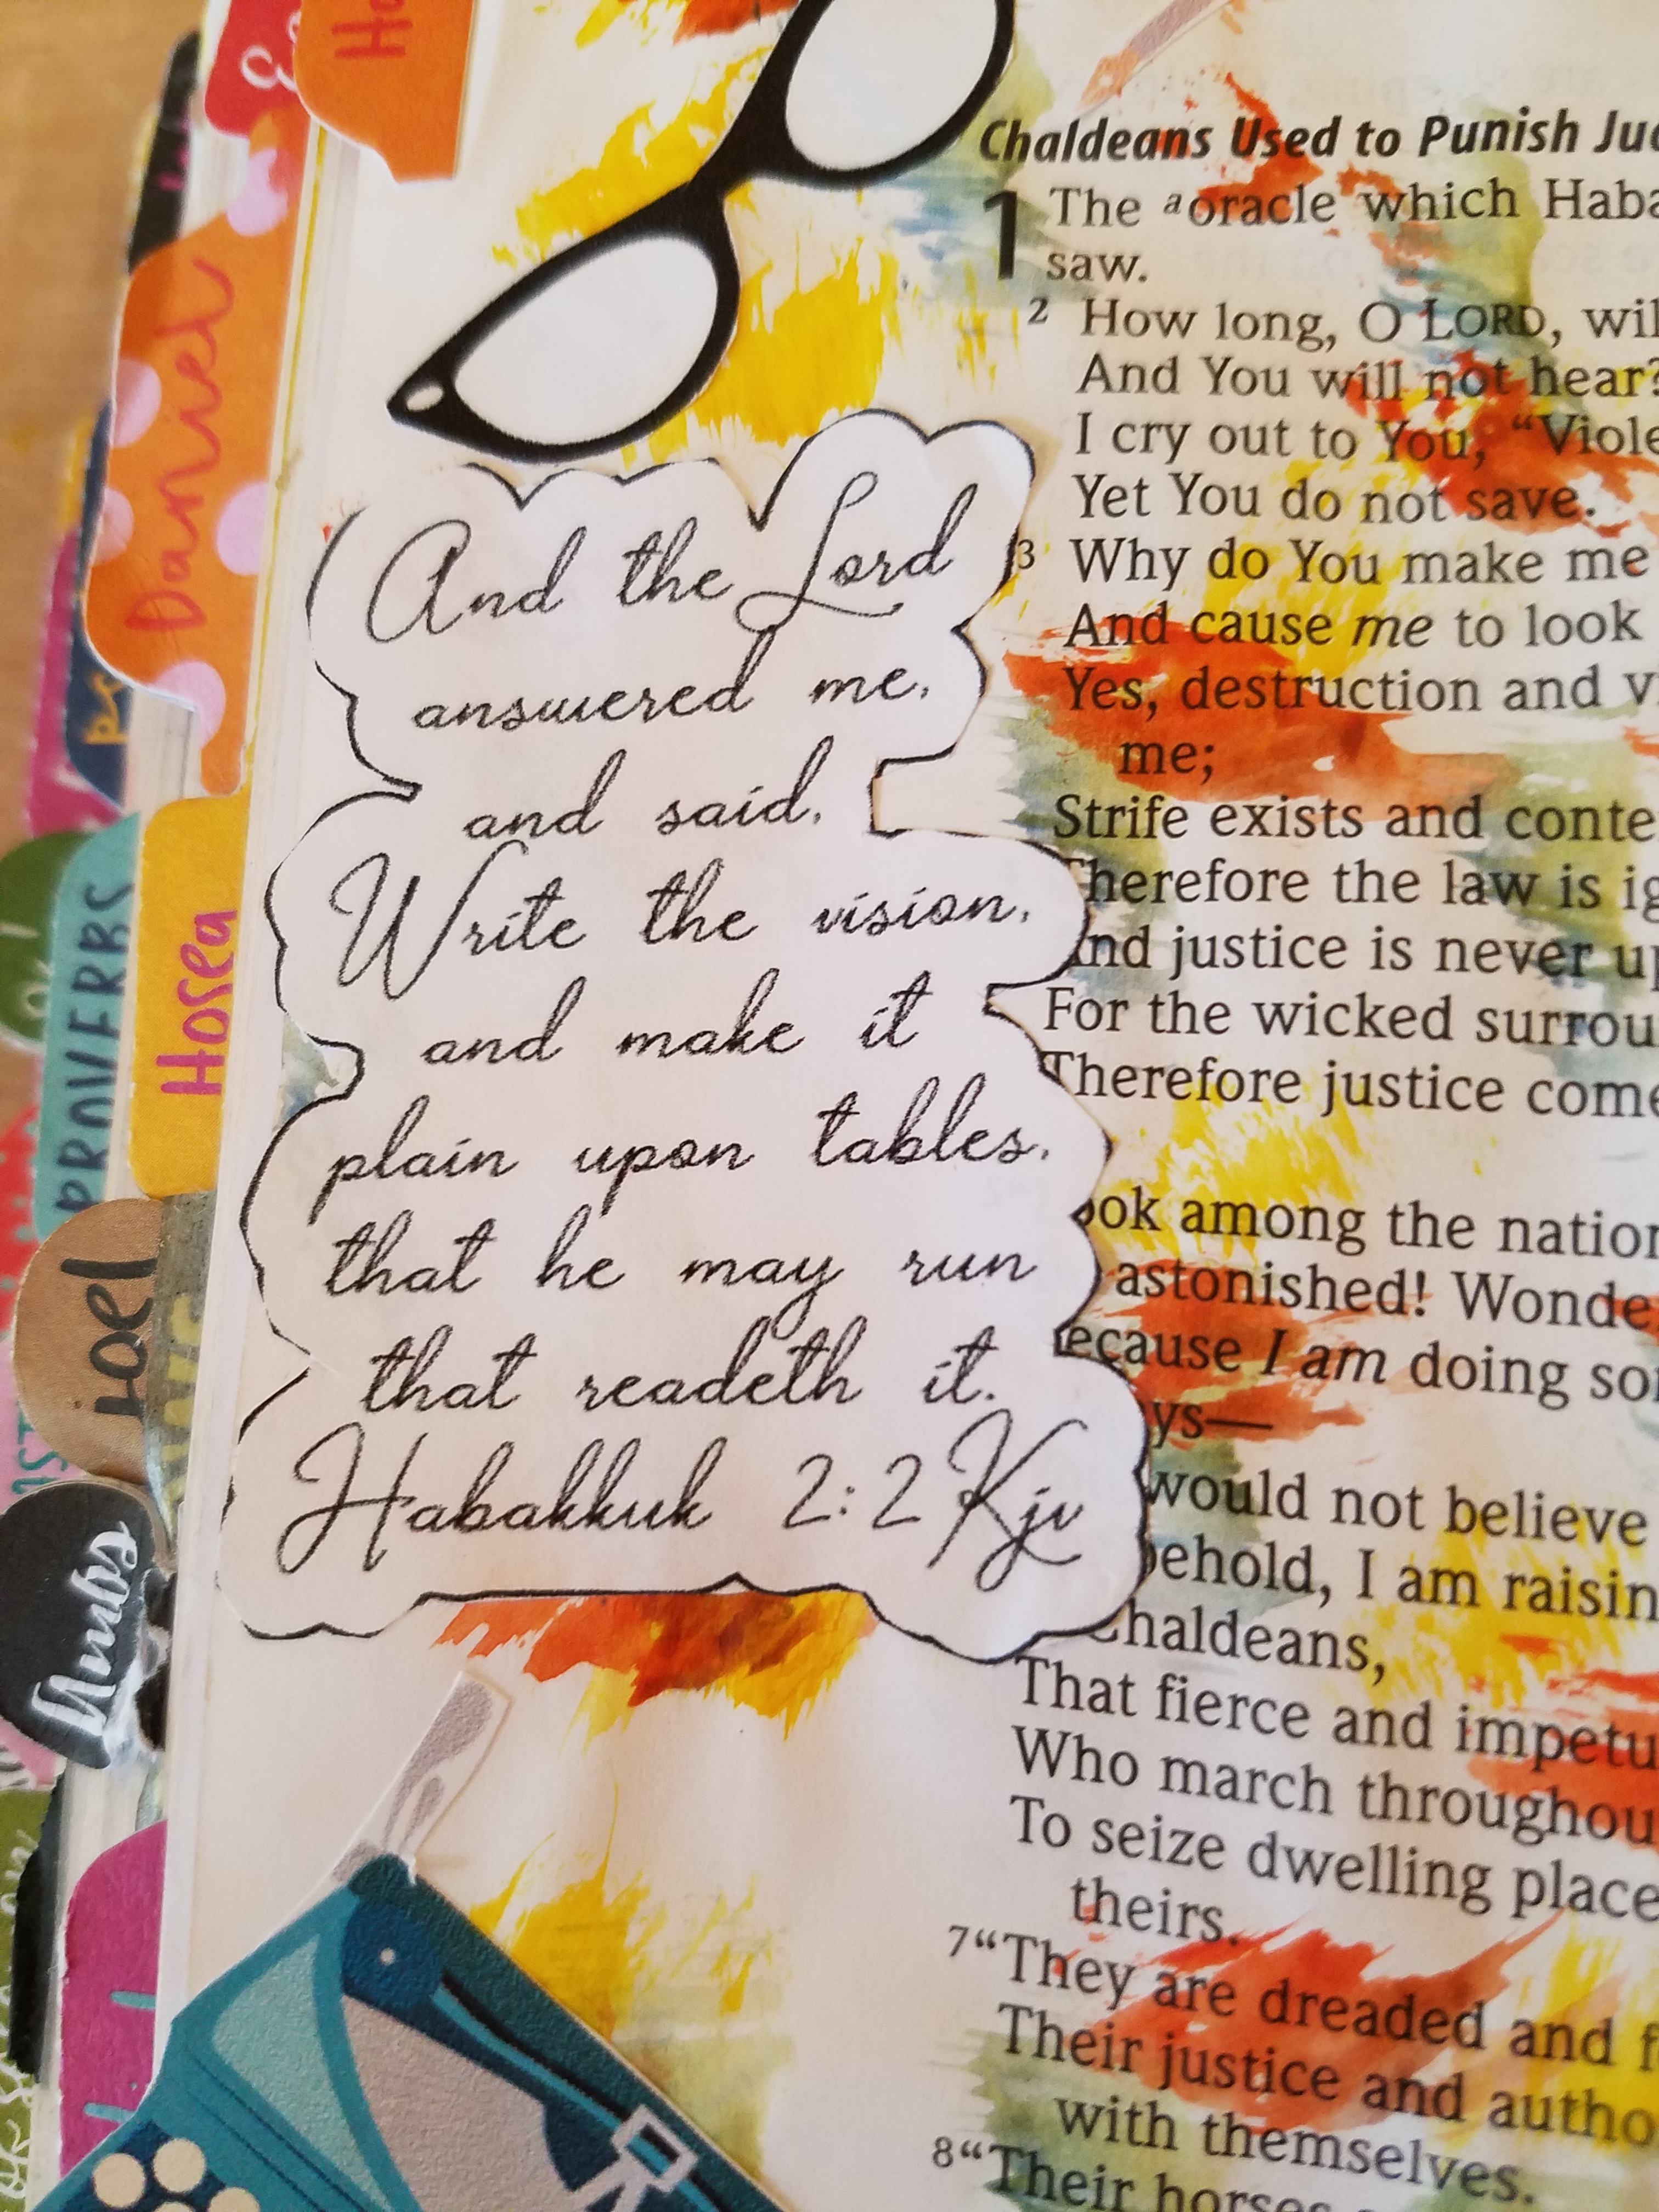 Daniel
Hosea
PROVERBS
Joel
Numbs
And the Lord
answered me,
and said,
Write the vision,
and make it
plain upon tables,
that he may run
that readeth it.
Habakkuk 2:2 Kjv
Chaldeans Used to Punish
1 The a oracle which
saw.
2 How long, O LORD,
And You will not hear?
I cry out to You,
Yet You do not save.
3 Why do You make me
And cause me to look
Yes, destruction and
me;
Strife exists and
Therefore the law is
And justice is never
For the wicked
Therefore justice
among the
astonished!
I am doing
would not believe
I am
Chaldeans,
That fierce and
Who march
To seize dwelling
theirs.
7 “They are dreaded and
Their justice and
with themselves.
8 “Their horses